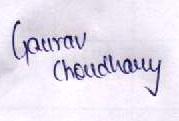 Gaurav
Choudhary